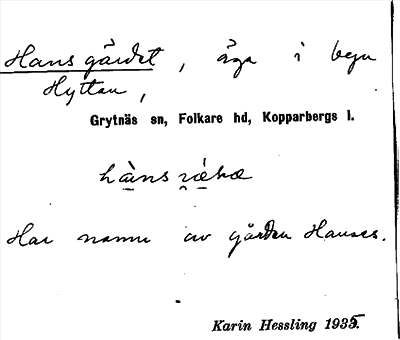 Hansgärdet, äga i byn
Hyttan,
Grytnäs sn, Folkare hd, Kopparbergs l.
hàns
Har namn av gården Hanses.
Karin Hessling 1935.